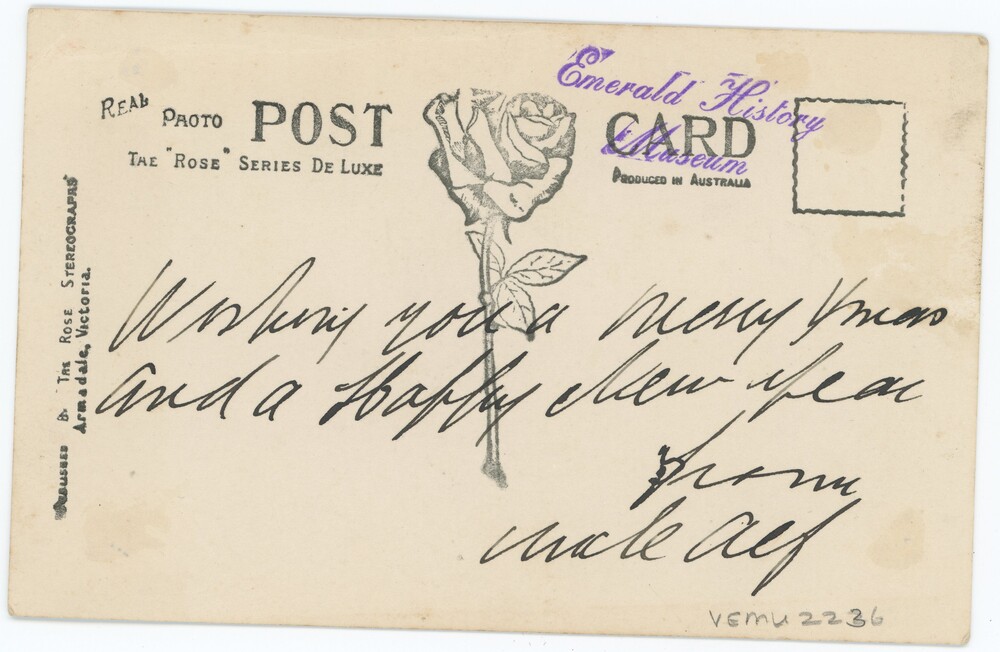 REAL PHOTO POST CARD
THE "ROSE" SERIES DE LUXE
PRODUCED IN AUSTRALIA
Emerald History
Museum
PUBLISHED BY THE ROSE STEREOGRAPHS
Armadale, Victoria.
Wishing you a merry Xmas
and a Happy New Year
from
uncle Alf
VEMU 2236